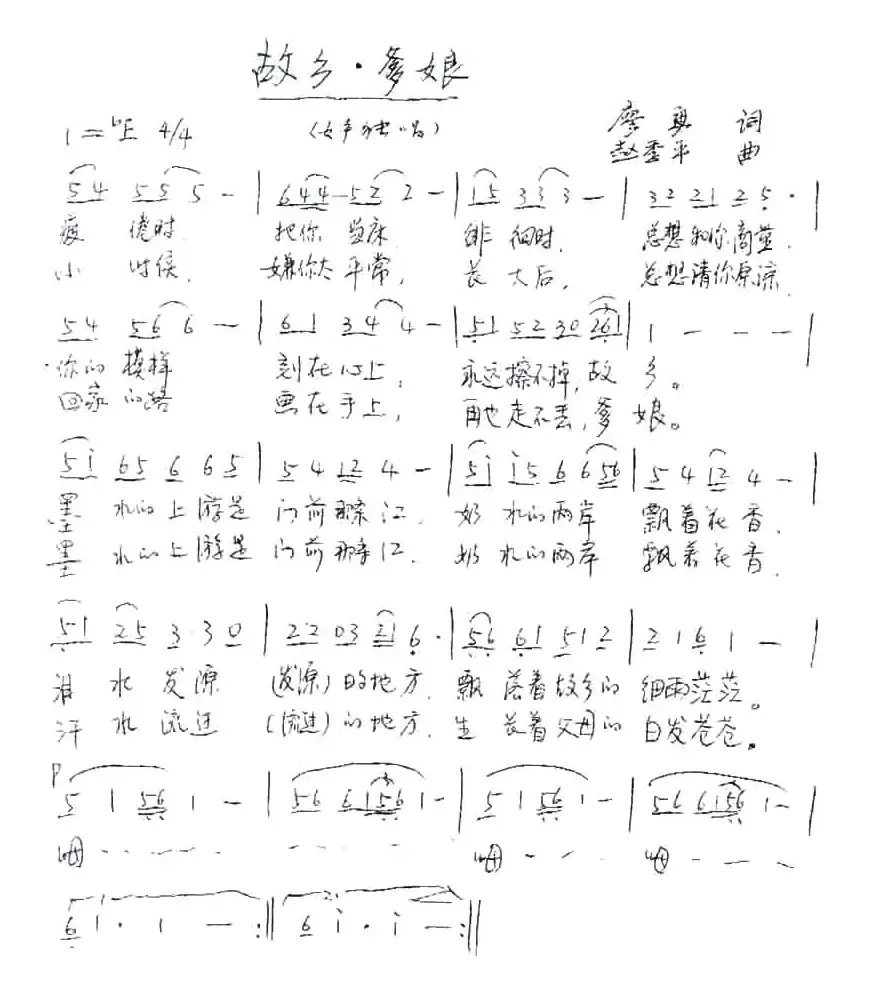 故乡·爹娘
1=♭E 4/4 （女声独唱）
廖 勇 词
赵季平 曲
5 4 5 5 5 — | 6 4 4 — 5 2 2 — | 1 5 3 3 3 — | 3 2 2 1 2 5 · |
疲 倦时 把你 当床 徘 徊时, 总想和你商量.
小 时候, 嫌你太平常, 长 大后, 总想请你原谅.
5 4 5 6 6 — | 6 1 3 4 4 — | 5 1 5 2 3 0 2 6 1 | 1 — — — |
你的模样 刻在心上, 永远擦不掉, 故 乡。
回家的路 画在手上, 再也走不丢, 爹 娘。
5 i 6 5 6 6 5 | 5 4 1 2 4 — | 5 i i 5 6 6 5 6 | 5 4 1 2 4 — |
墨 水的上游是 门前那条江. 奶 水的两岸 飘着花香.
墨 水的上游是 门前那条江. 奶 水的两岸 飘着花香.
5 1 2 5 3 · 3 0 | 2 2 0 3 2 1 6 · | 5 6 6 1 5 1 2 | 2 1 6 1 — |
泪 水 发 源 (发源) 的地方. 飘 落着故乡的 细雨茫茫。
汗 水 流过 (流过) 的地方. 生 长着父母的 白发苍苍。
P
5 1 5 6 1 — | 5 6 6 1 5 6 1 — | 5 1 5 6 1 — | 5 6 6 1 5 6 1 — |
呣 - - - - - - - - - - 呣 - - - 呣 - - -
1. 2.
6 1 · 1 — :|| 6 i · i — :||